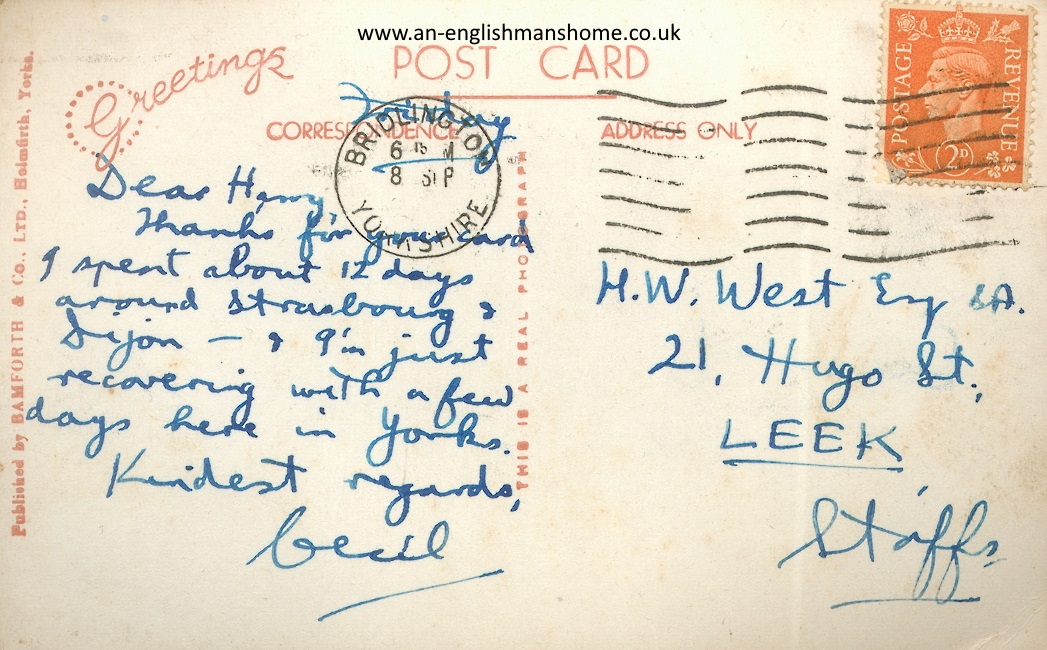 www.an-englishmanshome.co.uk
Greetings
POST CARD
Friday
CORRESPONDENCE
ADDRESS ONLY
BRIDLINGTON
6 15 M
8 SEP
YORKSHIRE
POSTAGE
REVENUE
2D
Dear Harry,
Thanks for your card
I spent about 12 days
around Strasbourg &
Dijon — & I'm just
recovering with a few
days here in Yorks.
Kindest regards,
Cecil
H.W. West Esq
21, Hugo St.,
LEEK
Staffs
Published by BAMFORTH & Co., LTD., Holmfirth, Yorks.
THIS IS A REAL PHOTOGRAPH